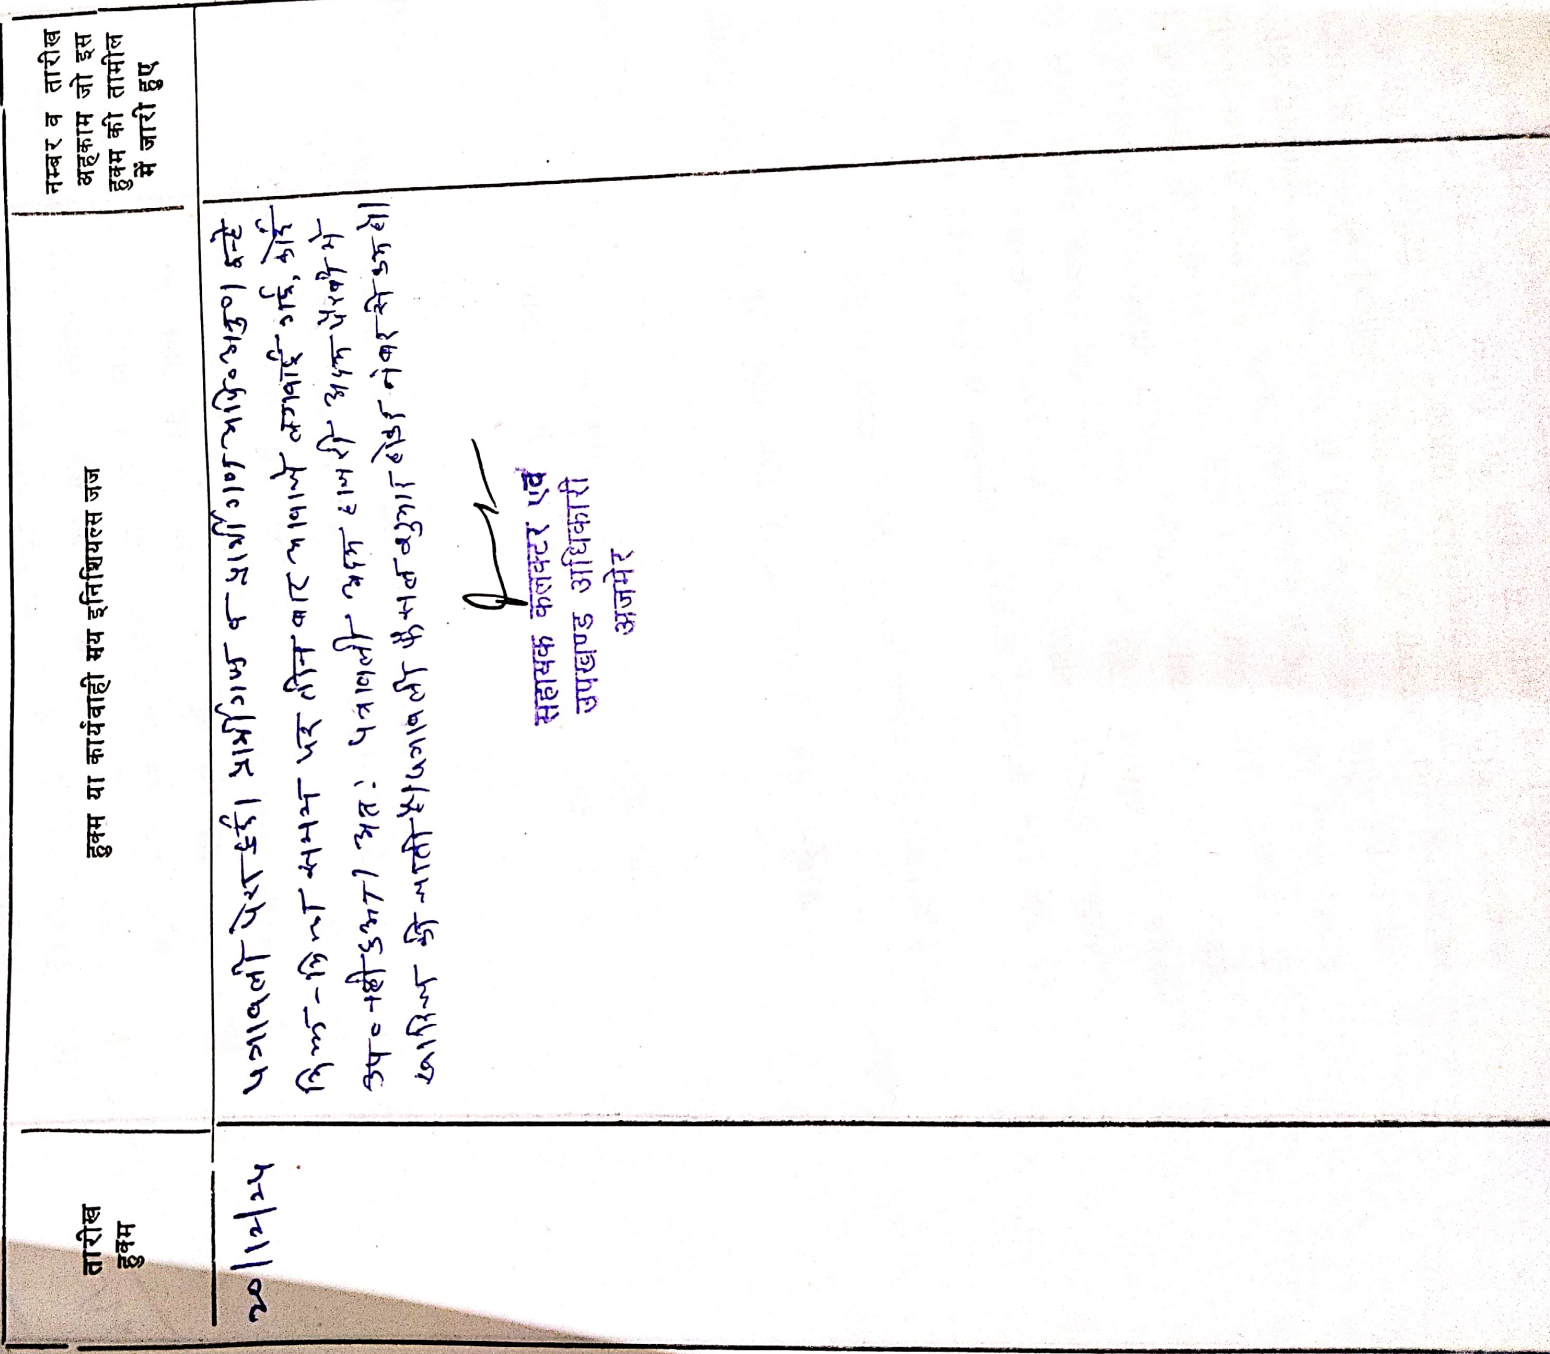 तारीख
हुक्म
हुक्म या कार्यवाही मय इनिशियल्स जज
नम्बर व तारीख
अहकाम जो इस
हुक्म की तामील
में जारी हुए
20/12/24
पत्रावली पेश हुई। प्रार्थीगण व अप्रार्थीगण अनु०।
भिन्न-भिन्न समय पर तीन बार आवाजें लगवाई गई, कोई
उप० नहीं हुआ। अतः पत्रावली अदम हाजरी अदम पैरवी में
खारिज की जाती है। पत्रावली फैसल शुमार होकर नंबर से कम हो।
सहायक कलक्टर एवं
उपखण्ड अधिकारी
अजमेर